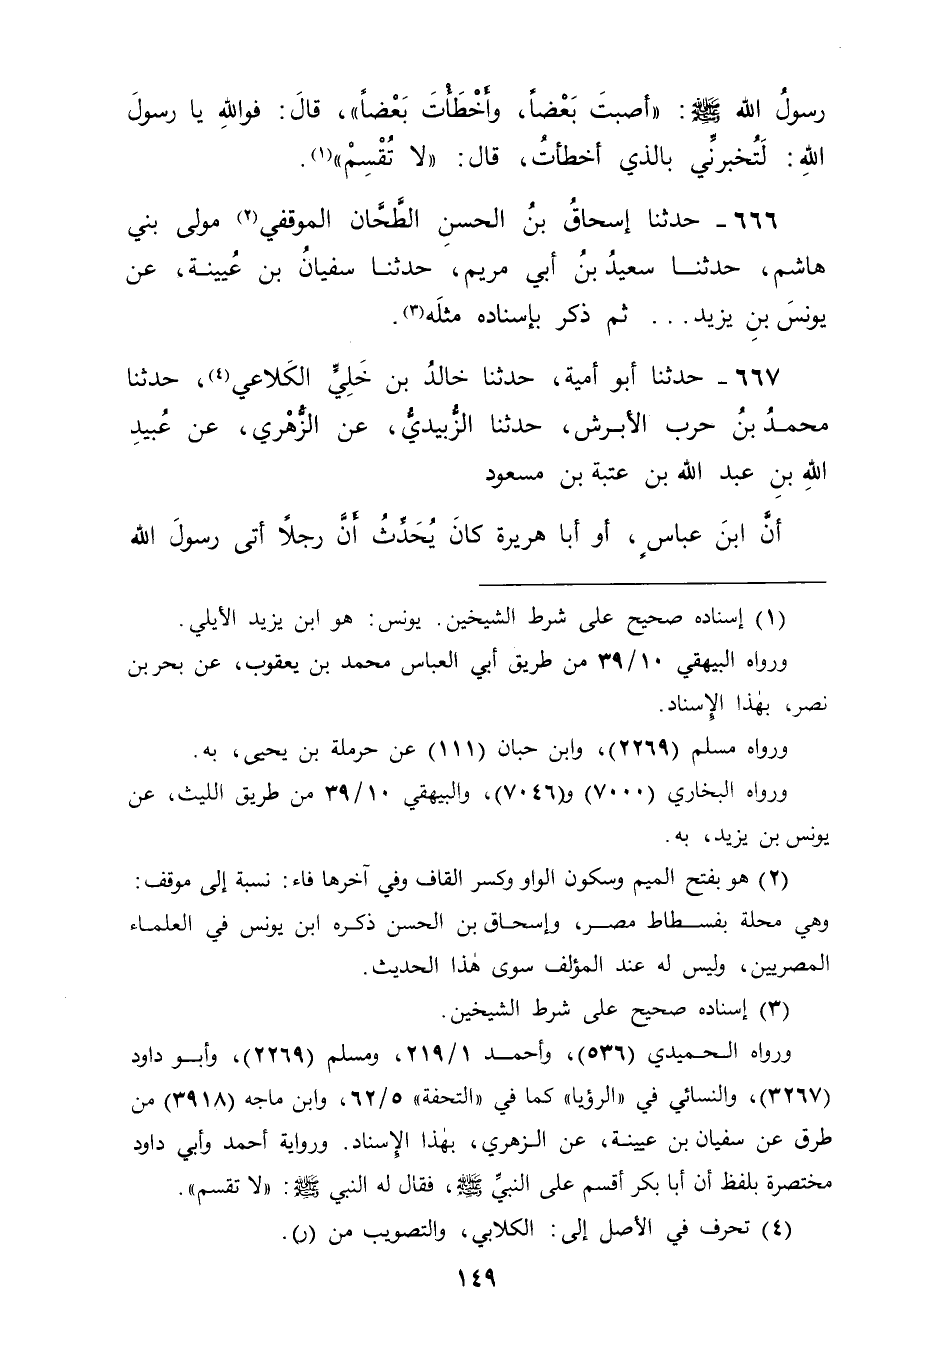 رسولُ الله ﷺ: «أصبتَ بَعْضاً، وأَخْطَأْتَ بَعْضاً»، قالَ: فواللهِ يا رسولَ
اللهِ: لَتُخبرنِّي بالذي أخطأتُ، قال: «لا تُقْسِمْ»(١).
٦٦٦ ـ حدثنا إسحاقُ بنُ الحسنِ الطَّحَّان الموقفي(٢) مولى بني
هاشم، حدثنـا سعيدُ بنُ أبي مريم، حدثنـا سفيانُ بن عُيينـة، عن
يونسَ بنِ يزيد... ثم ذكر بإسناده مثلَه(٣).
٦٦٧ ـ حدثنا أبو أمية، حدثنا خالدُ بن خَلِيٍّ الكَلاعي(٤)، حدثنا
محمـدُ بنُ حرب الأبـرش، حدثنا الزُّبيديُّ، عن الزُّهْري، عن عُبيدِ
اللهِ بنِ عبد الله بن عتبة بن مسعود
أنَّ ابنَ عباسٍ، أو أبا هريرة كانَ يُحَدِّثُ أَنَّ رجلاً أتى رسولَ الله
(١) إسناده صحيح على شرط الشيخين. يونس: هو ابن يزيد الأيلي.
ورواه البيهقي ٣٩/١٠ من طريق أبي العباس محمد بن يعقوب، عن بحر بن
نصر، بهٰذا الإِسناد.
ورواه مسلم (٢٢٦٩)، وابن حبان (١١١) عن حرملة بن يحيى، به.
ورواه البخاري (٧٠٠٠) و(٧٠٤٦)، والبيهقي ٣٩/١٠ من طريق الليث، عن
يونس بن يزيد، به.
(٢) هو بفتح الميم وسكون الواو وكسر القاف وفي آخرها فاء: نسبة إلى موقف:
وهي محلة بفسـطاط مصـر، وإسحـاق بن الحسن ذكـره ابن يونس في العلمـاء
المصريين، وليس له عند المؤلف سوى هٰذا الحديث.
(٣) إسناده صحيح على شرط الشيخين.
ورواه الـحـميدي (٥٣٦)، وأحمـد ٢١٩/١، ومسلم (٢٢٦٩)، وأبـو داود
(٣٢٦٧)، والنسائي في «الرؤيا» كما في «التحفة» ٦٢/٥، وابن ماجه (٣٩١٨) من
طرق عن سفيان بن عيينـة، عن الـزهري، بهٰذا الإِسناد. ورواية أحمد وأبي داود
مختصرة بلفظ أن أبا بكر أقسم على النبيِّ ﷺ، فقال له النبي ﷺ: «لا تقسم».
(٤) تحرف في الأصل إلى: الكلابي، والتصويب من (ر).
١٤٩